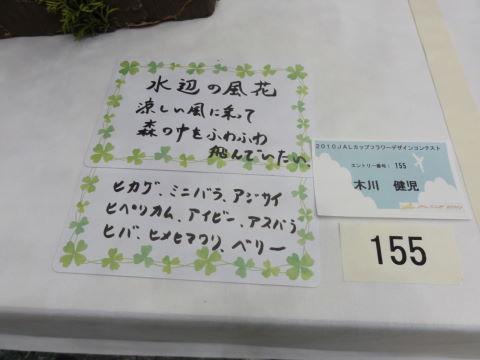 水辺の風花
涼しい風に乗って
森の中をふわふわ
飛んでいたい
ヒカゲ、ミニバラ、アジサイ
ヒペリカム、アイビー、アスパラ
ヒバ、ヒメヒマワリ、ベリー
2010JALカップフラワーデザインコンテスト
エントリー番号: 155
木川 健児
155